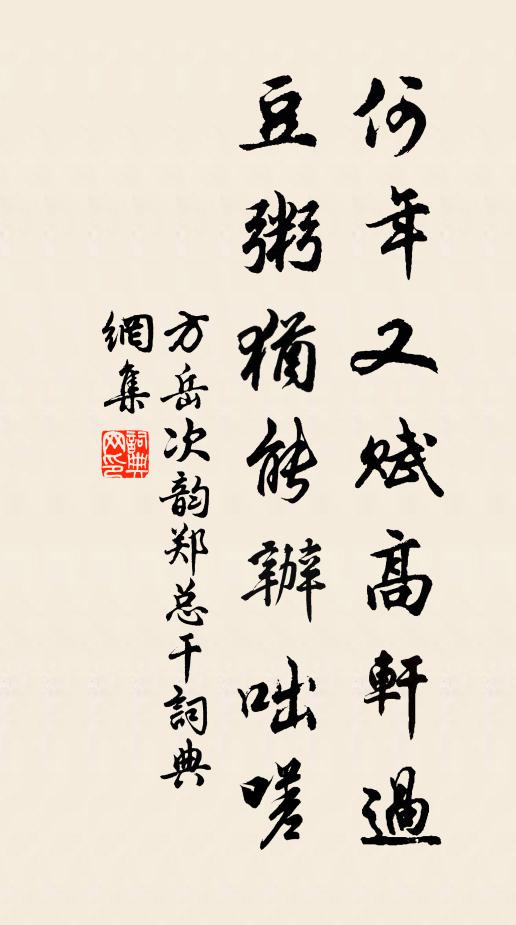 何年又赋高軒過
豆粥猶能辦咄嗟
方岳次韵郑总干詞典
網集
詞典网印